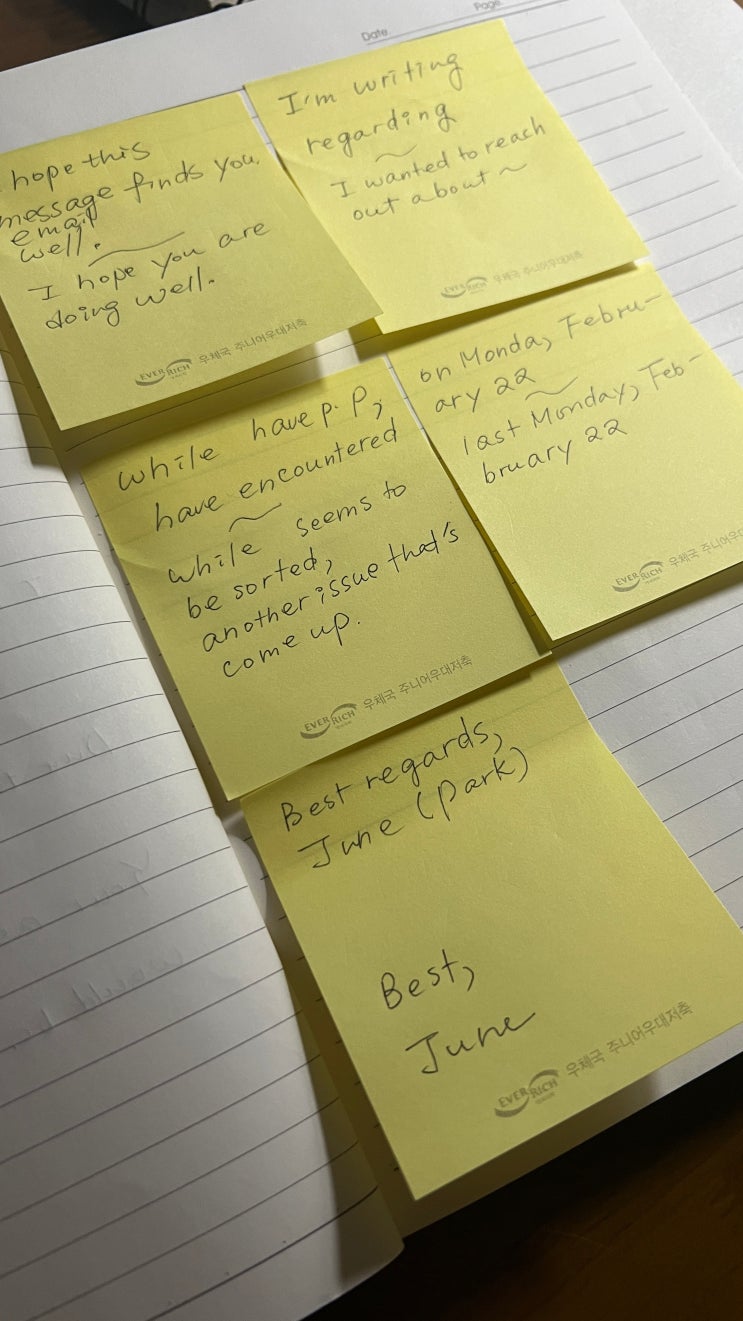 Date
Page
hope this
message finds you
email
well.
I hope you are
doing well.
EVER RICH 우체국 주니어우대저축
I'm writing
regarding
I wanted to reach
out about ~
EVER RICH 우체국 주니어우대저축
while have p.p,
have encountered
while seems to
be sorted,
another issue that's
come up.
EVER RICH 우체국 주니어우대저축
on Monday, Febru-
ary 22
last Monday, Feb-
bruary 22
EVER RICH 우체국 주니어우
Best regards,
June (Park)
Best,
June
EVER RICH 우체국 주니어우대저축